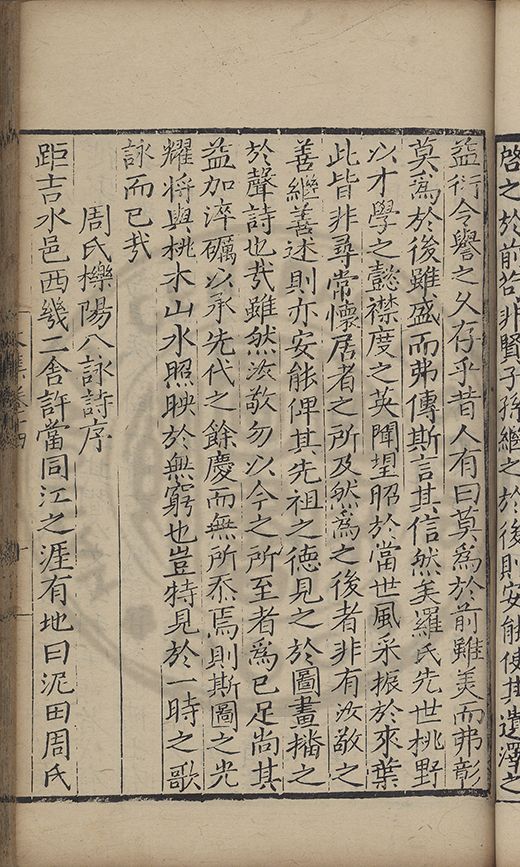 啓之於前茍非賢子孫繼之於後則安能使其遺澤之
益衍令譽之久存乎昔人有曰莫爲於前雖美而弗彰
莫爲於後雖盛而弗傳斯言其信然矣羅氏先世桃野
以才學之懿襟度之英聞望昭於當世風采振於來葉
此皆非尋常懷居者之所及然爲之後者非有汝敬之
善繼善述則亦安能俾其先祖之德見之於圖畫播之
於聲詩也㢤雖然汝敬勿以今之所至者爲已足尚其
益加淬礪以承先代之餘慶而無所忝焉則斯圖之光
耀將與桃木山水照映於無窮也豈特見於一時之歌
詠而已㢤
周氏櫟陽八詠詩序
距吉水邑西幾二舍許當同江之涯有地曰泥田周氏